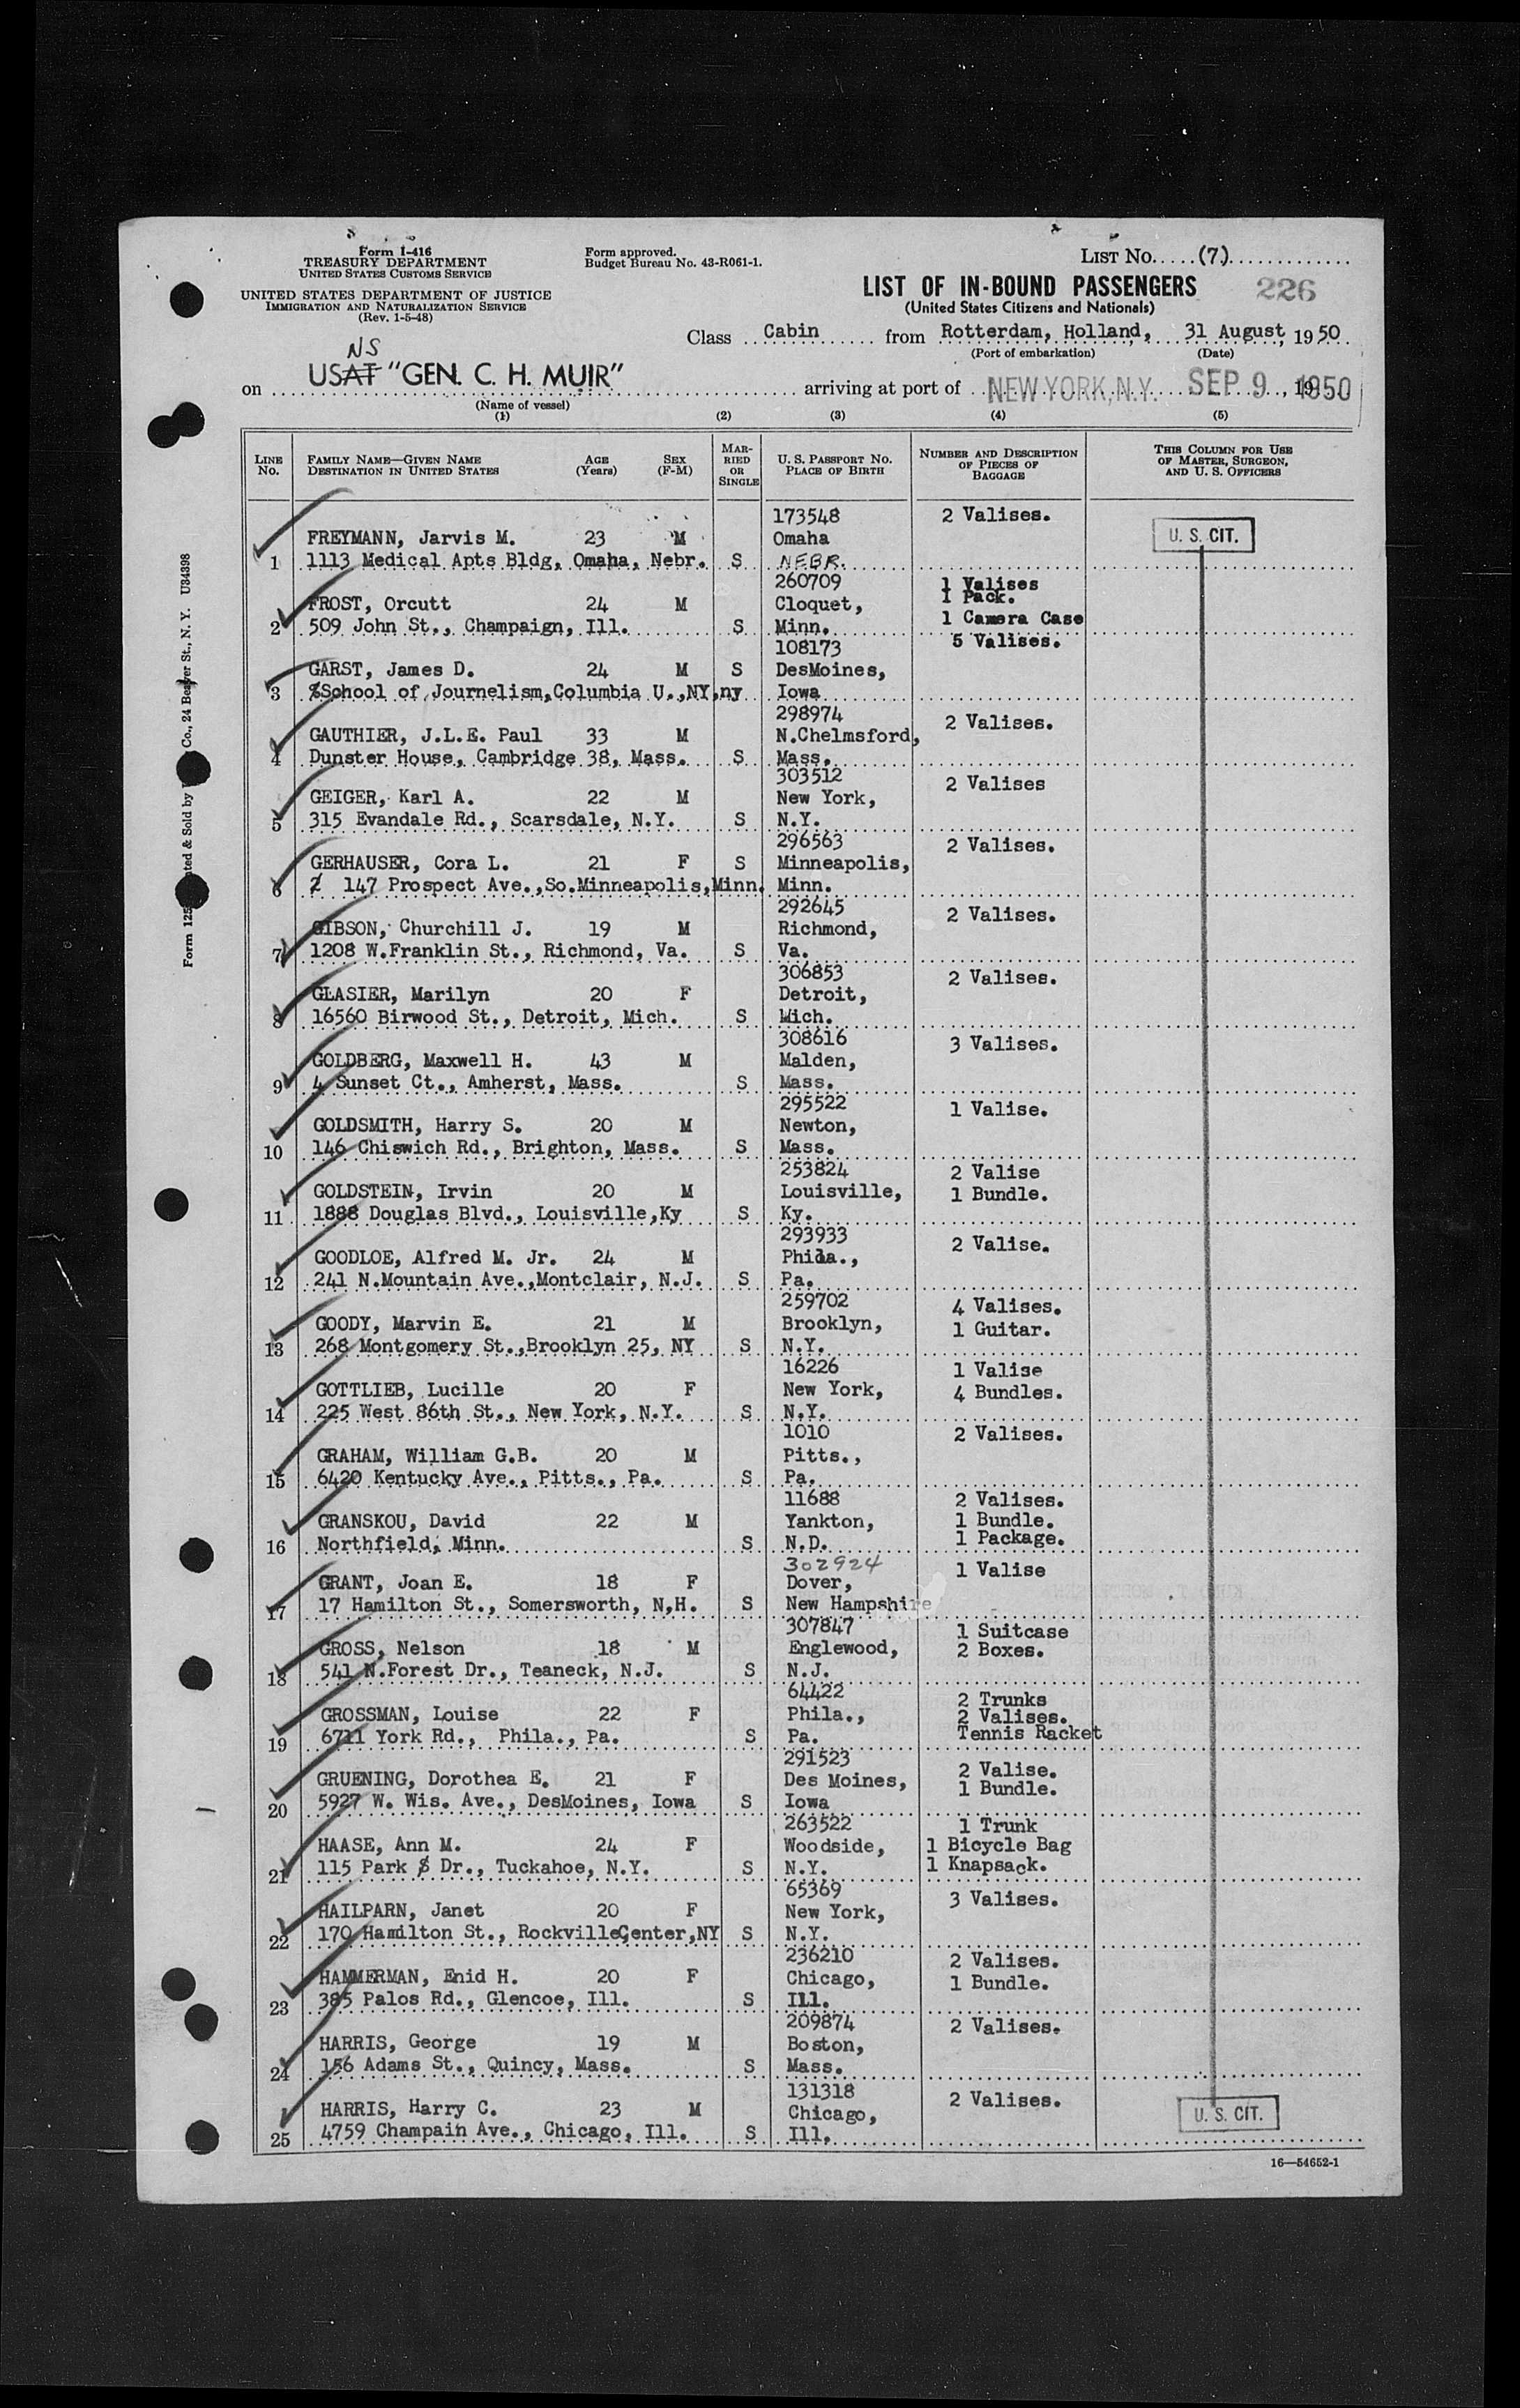 Form I-416
TREASURY DEPARTMENT
UNITED STATES CUSTOMS SERVICE
UNITED STATES DEPARTMENT OF JUSTICE
IMMIGRATION AND NATURALIZATION SERVICE
(Rev. 1-5-48)
Form approved.
Budget Bureau No. 43-R061-1.
LIST No. (7)
LIST OF IN-BOUND PASSENGERS
226
(United States Citizens and Nationals)
Class Cabin from Rotterdam, Holland, 31 August, 1950
(Port of embarkation) (Date)
NS
on USAT "GEN. C. H. MUIR" arriving at port of NEW YORK, N.Y. SEP 9, 1950
(Name of vessel)
(1) (2) (3) (4) (5)
LINE No. FAMILY NAME—GIVEN NAME DESTINATION IN UNITED STATES AGE (Years) SEX (F-M) MARRIED OR SINGLE U. S. PASSPORT No. PLACE OF BIRTH NUMBER AND DESCRIPTION OF PIECES OF BAGGAGE THIS COLUMN FOR USE OF MASTER, SURGEON, AND U. S. OFFICERS
173548 2 Valises.
FREYMANN, Jarvis M. 23 M Omaha U. S. CIT.
1 1113 Medical Apts Bldg, Omaha, Nebr. S NEBR.
260709 1 Valises
1 Pack.
FROST, Orcutt 24 M Cloquet,
2 509 John St., Champaign, Ill. S Minn. 1 Camera Case
108173 5 Valises.
GARST, James D. 24 M S DesMoines,
3 %School of Journelism,Columbia U.,NY,ny Iowa
298974 2 Valises.
GAUTHIER, J.L.E. Paul 33 M N.Chelmsford,
4 Dunster House, Cambridge 38, Mass. S Mass.
303512 2 Valises
GEIGER, Karl A. 22 M New York,
5 315 Evandale Rd., Scarsdale, N.Y. S N.Y.
296563 2 Valises.
GERHAUSER, Cora L. 21 F S Minneapolis,
6 147 Prospect Ave.,So.Minneapolis,Minn. Minn.
292645 2 Valises.
GIBSON, Churchill J. 19 M Richmond,
7 1208 W.Franklin St., Richmond, Va. S Va.
306853 2 Valises.
GLASIER, Marilyn 20 F Detroit,
8 16560 Birwood St., Detroit, Mich. S Mich.
308616 3 Valises.
GOLDBERG, Maxwell H. 43 M Malden,
9 4 Sunset Ct., Amherst, Mass. S Mass.
295522 1 Valise.
GOLDSMITH, Harry S. 20 M Newton,
10 146 Chiswich Rd., Brighton, Mass. S Mass.
253824 2 Valise
GOLDSTEIN, Irvin 20 M Louisville, 1 Bundle.
11 1888 Douglas Blvd., Louisville,Ky S Ky.
293933 2 Valise.
GOODLOE, Alfred M. Jr. 24 M Phila.,
12 241 N.Mountain Ave.,Montclair, N.J. S Pa.
259702 4 Valises.
GOODY, Marvin E. 21 M Brooklyn, 1 Guitar.
13 268 Montgomery St.,Brooklyn 25, NY S N.Y.
16226 1 Valise
GOTTLIEB, Lucille 20 F New York, 4 Bundles.
14 225 West 86th St., New York, N.Y. S N.Y.
1010 2 Valises.
GRAHAM, William G.B. 20 M Pitts.,
15 6420 Kentucky Ave., Pitts., Pa. S Pa.
11688 2 Valises.
GRANSKOU, David 22 M Yankton, 1 Bundle.
16 Northfield, Minn. S N.D. 1 Package.
302924 1 Valise
GRANT, Joan E. 18 F Dover,
17 17 Hamilton St., Somersworth, N,H. S New Hampshire
307847 1 Suitcase
GROSS, Nelson 18 M Englewood, 2 Boxes.
18 541 N.Forest Dr., Teaneck, N.J. S N.J.
64422 2 Trunks
GROSSMAN, Louise 22 F Phila., 2 Valises.
19 6711 York Rd., Phila., Pa. S Pa. Tennis Racket
291523 2 Valise.
GRUENING, Dorothea E. 21 F Des Moines, 1 Bundle.
20 5927 W. Wis. Ave., DesMoines, Iowa S Iowa
263522 1 Trunk
HAASE, Ann M. 24 F Woodside, 1 Bicycle Bag
21 115 Park Dr., Tuckahoe, N.Y. S N.Y. 1 Knapsack.
65369 3 Valises.
HAILPARN, Janet 20 F New York,
22 170 Hamilton St., RockvilleCenter,NY S N.Y.
236210 2 Valises.
HAMMERMAN, Enid H. 20 F Chicago, 1 Bundle.
23 385 Palos Rd., Glencoe, Ill. S Ill.
209874 2 Valises.
HARRIS, George 19 M Boston,
24 156 Adams St., Quincy, Mass. S Mass.
131318 2 Valises.
HARRIS, Harry C. 23 M Chicago, U. S. CIT.
25 4759 Champain Ave., Chicago, Ill. S Ill.
16—54652-1
Form 125 & Sold by Co., 24 Beaver St., N. Y. U34398